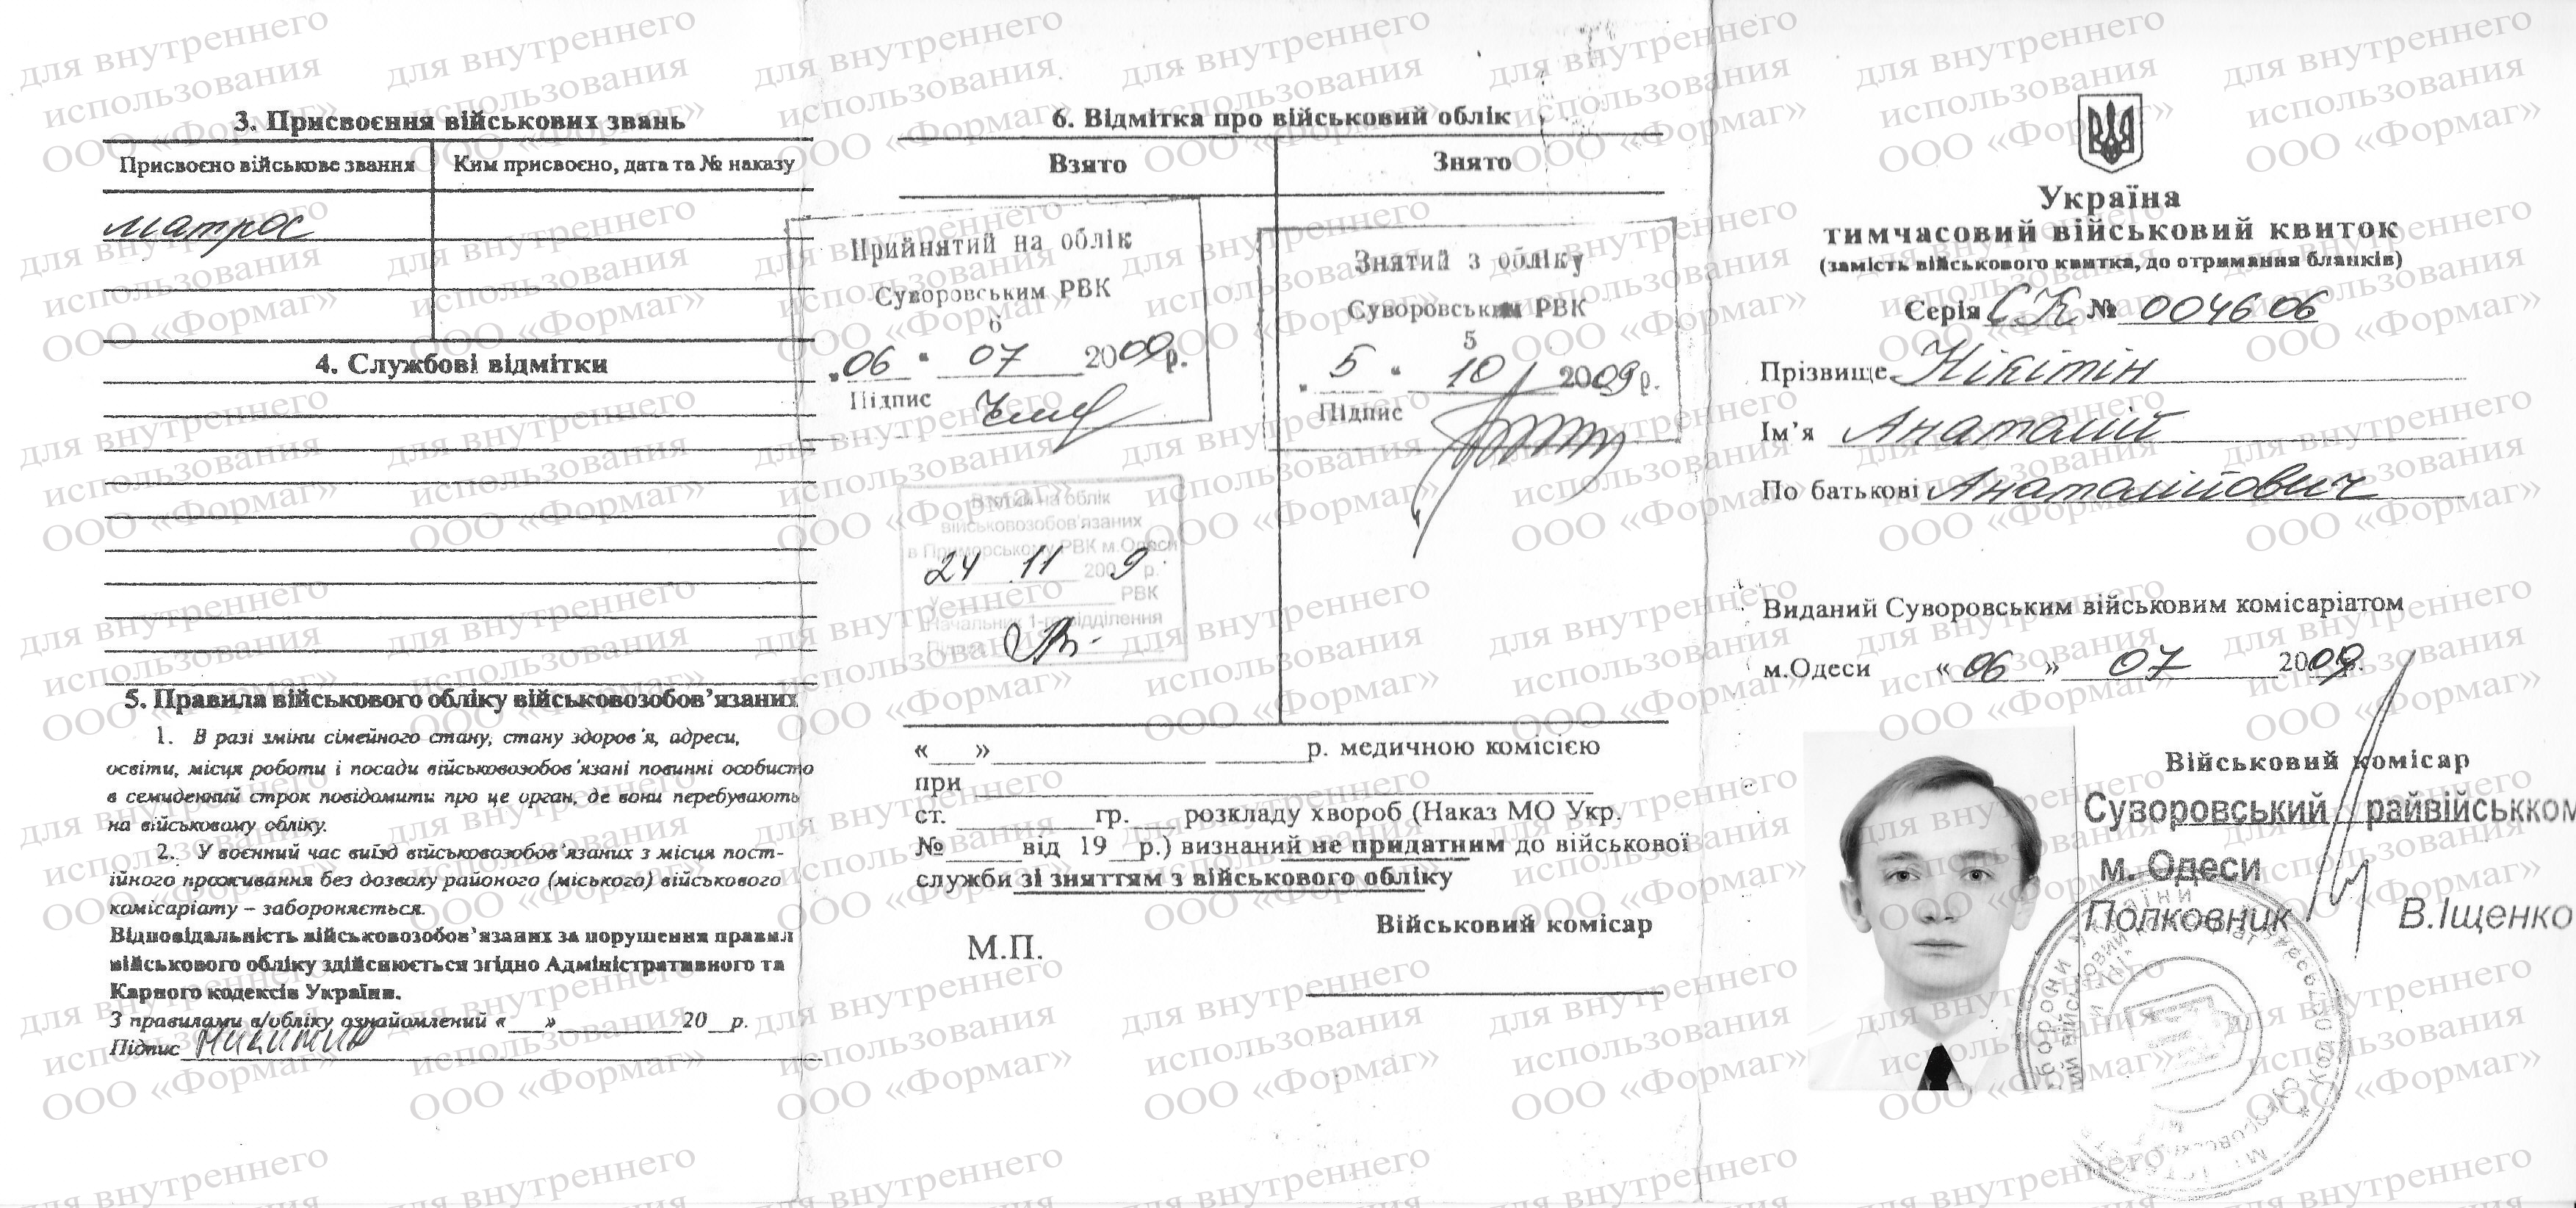 3. Присвоєння військових звань
Присвоєно військове звання
Ким присвоєно, дата та № наказу
матрос
4. Службові відмітки
5. Правила військового обліку військовозобов’язаних
1. В разі зміни сімейного стану, стану здоров’я, адреси,
освіти, місця роботи і посади військовозобов’язані повинні особисто
в семиденний строк повідомити про це орган, де вони перебувають
на військовому обліку.
2. У воєнний час виїзд військовозобов’язаних з місця пост-
ійного проживання без дозволу районого (міського) військового
комісаріату – забороняється.
Відповідальність військовозобов’язаних за порушення правил
військового обліку здійснюється згідно Адміністративного та
Карного кодексів України.
З правилами в/обліку ознайомлений «___»__________20__р.
Підпис
6. Відмітка про військовий облік
Взято
Знято
Прийнятий на облік
Суворовським РВК
6
„06“ 07 2009р.
Підпис
Знятий з обліку
Суворовським РВК
5
„5“ 10 2009р.
Підпис
Взятий на облік
військовозобов'язаних
в Приморському РВК м.Одеси
24 11 2009 р.
у РВК
Начальник 1-го відділення
«___»______________ ______р. медичною комісією
при
ст. __________гр.___ розкладу хвороб (Наказ МО Укр.
№______від 19__р.) визнаний не придатним до військової
служби зі зняттям з військового обліку
Військовий комісар
М.П.
Україна
тимчасовий військовий квиток
(замість військового квитка, до отримання бланків)
Серія СК № 004606
Прізвище Нікітін
Ім’я Анатолій
По батькові Анатолійович
Виданий Суворовським військовим комісаріатом
м.Одеси «06» 07 2009.
Військовий комісар
Суворовський райвійськком
м. Одеси
Полковник В.Іщенко
для внутреннего
использования
ООО «Формаг»